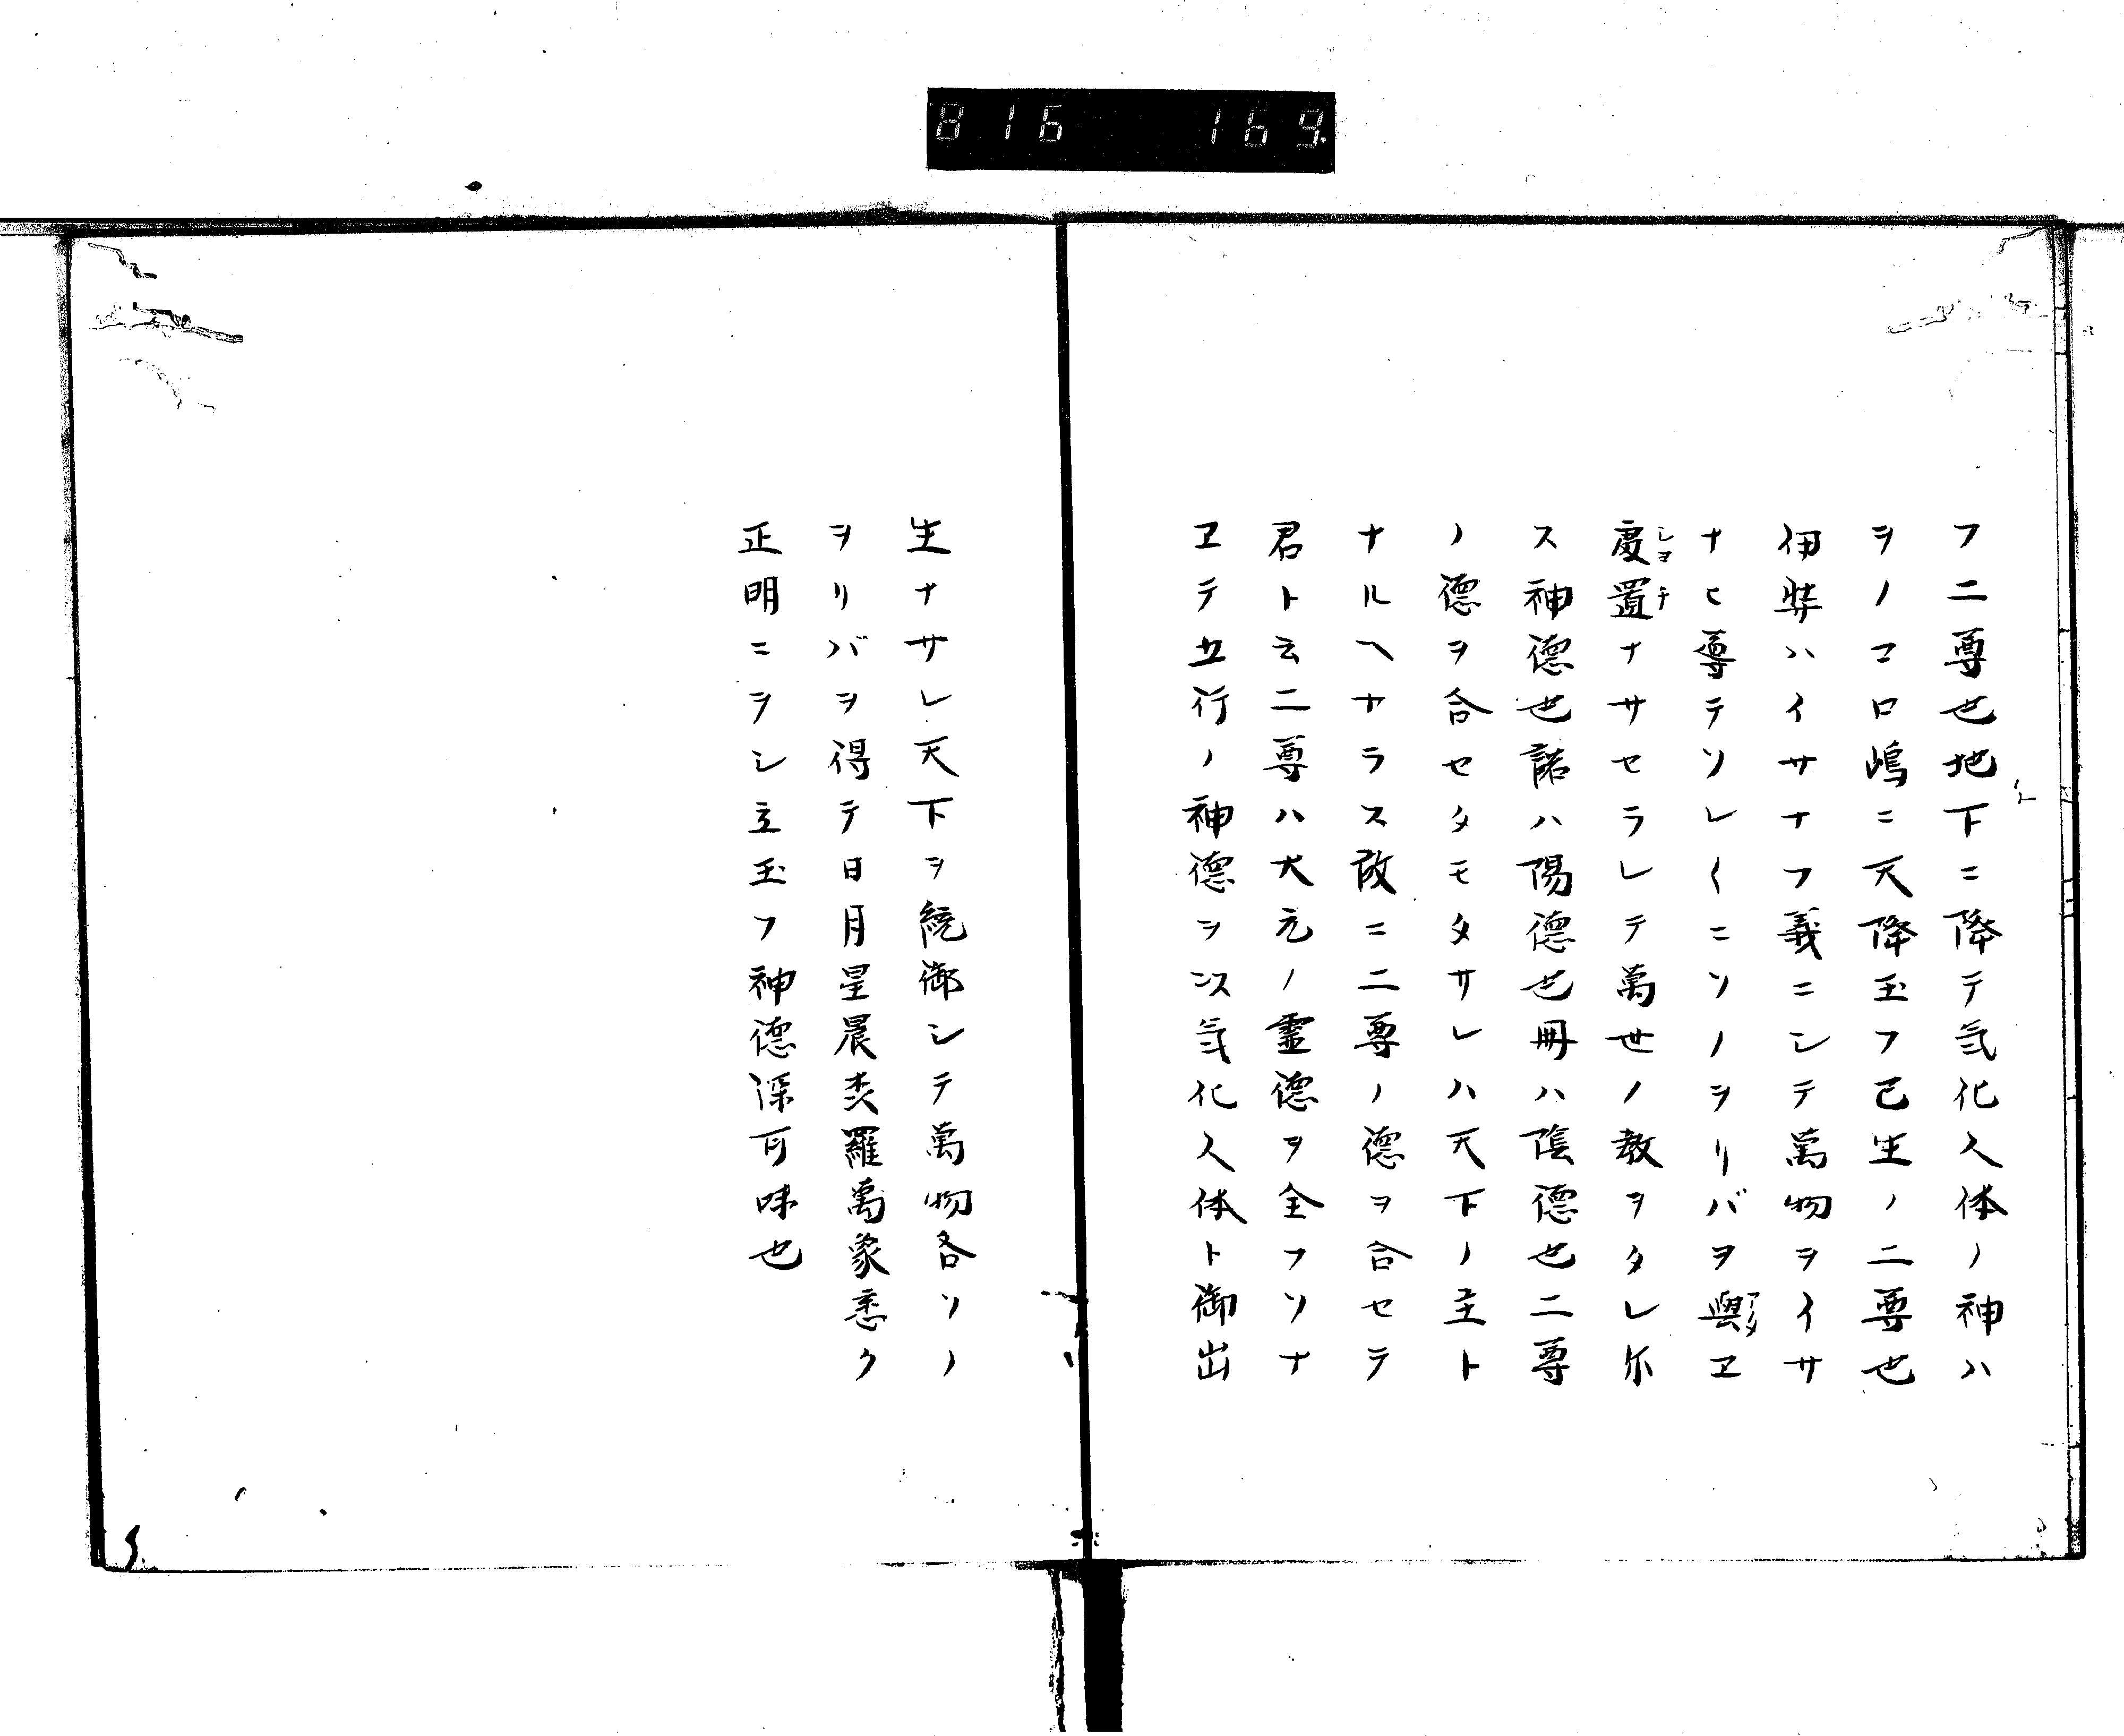 816 169.
フ二尊也地下ニ降テ気化人体ノ神ハ
ヲノコロ嶋ニ天降玉フ已生ノ二尊也
伊弉ハイサナフ義ニシテ萬物ヲイサ
ナヒ尊テソレ〱ニソノヲリバヲ與ヱ
アタ
處置ナサセラレテ萬世ノ教ヲタレ尓
シヨチ
ス神德也諾ハ陽德也冊ハ陰德也二尊
ノ德ヲ合セタモタサレハ天下ノ主ト
ナルヘカラス故ニ二尊ノ德ヲ合セテ
君ト云二尊ハ大元ノ霊德ヲ全フソナ
ヱテ五行ノ神德ヲ以気化人体ト御出
生ナサレ天下ヲ統御シテ萬物各ソノ
ヲリバヲ得テ日月星晨森羅萬象悉ク
正明ニヲシ立玉フ神德深可味也